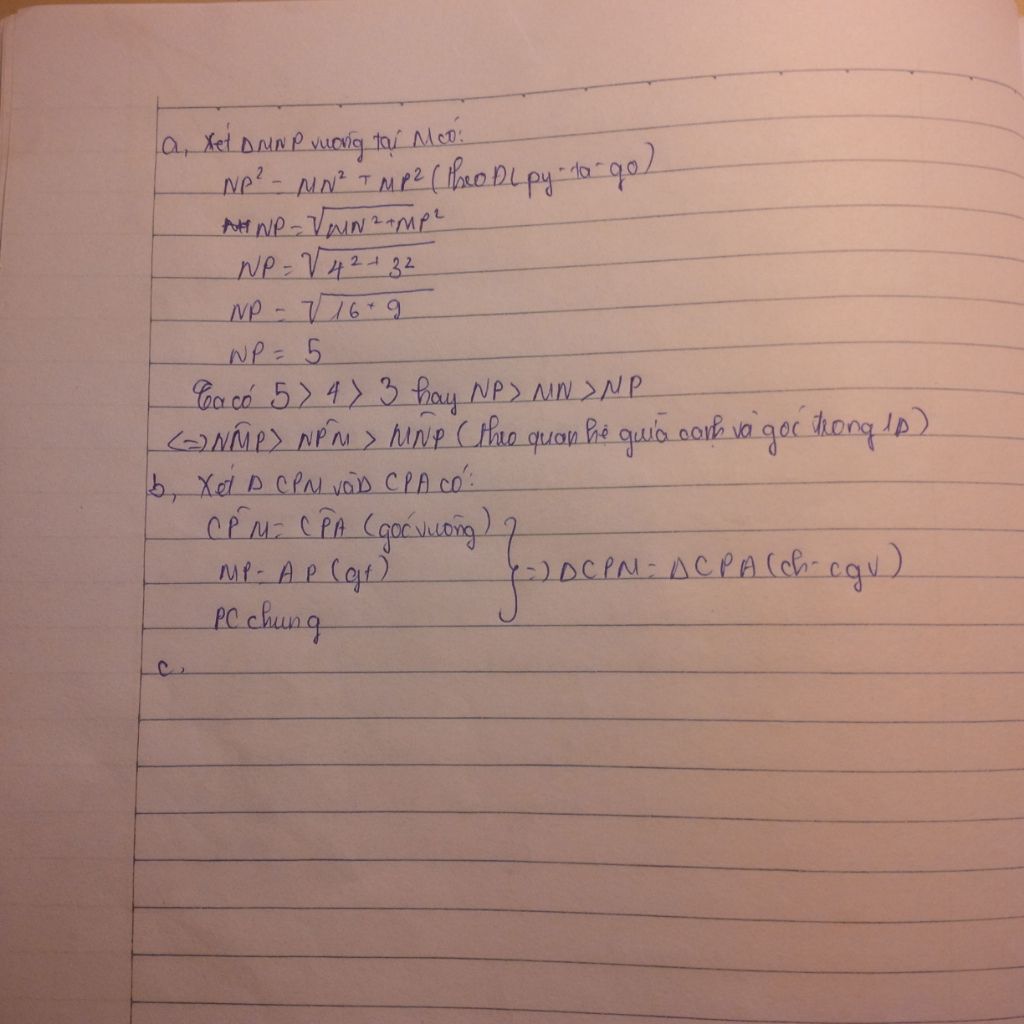 a, Xét Δ MNP vuông tại M có:
NP² = MN² + MP² (theo ĐL py-ta-go)
NP = √MN² + MP²
NP = √4² + 3²
NP = √16 + 9
NP = 5
Ta có 5 > 4 > 3 hay NP > MN > MP
<=> NM̂P > NP̂M > MN̂P (theo quan hệ giữa cạnh và góc trong 1Δ)
b, Xét Δ CPM và Δ CPA có:
CP̂M = CP̂A (góc vuông)
MP = AP (gt) } => ΔCPM = ΔCPA (ch - cgv)
PC chung
c,